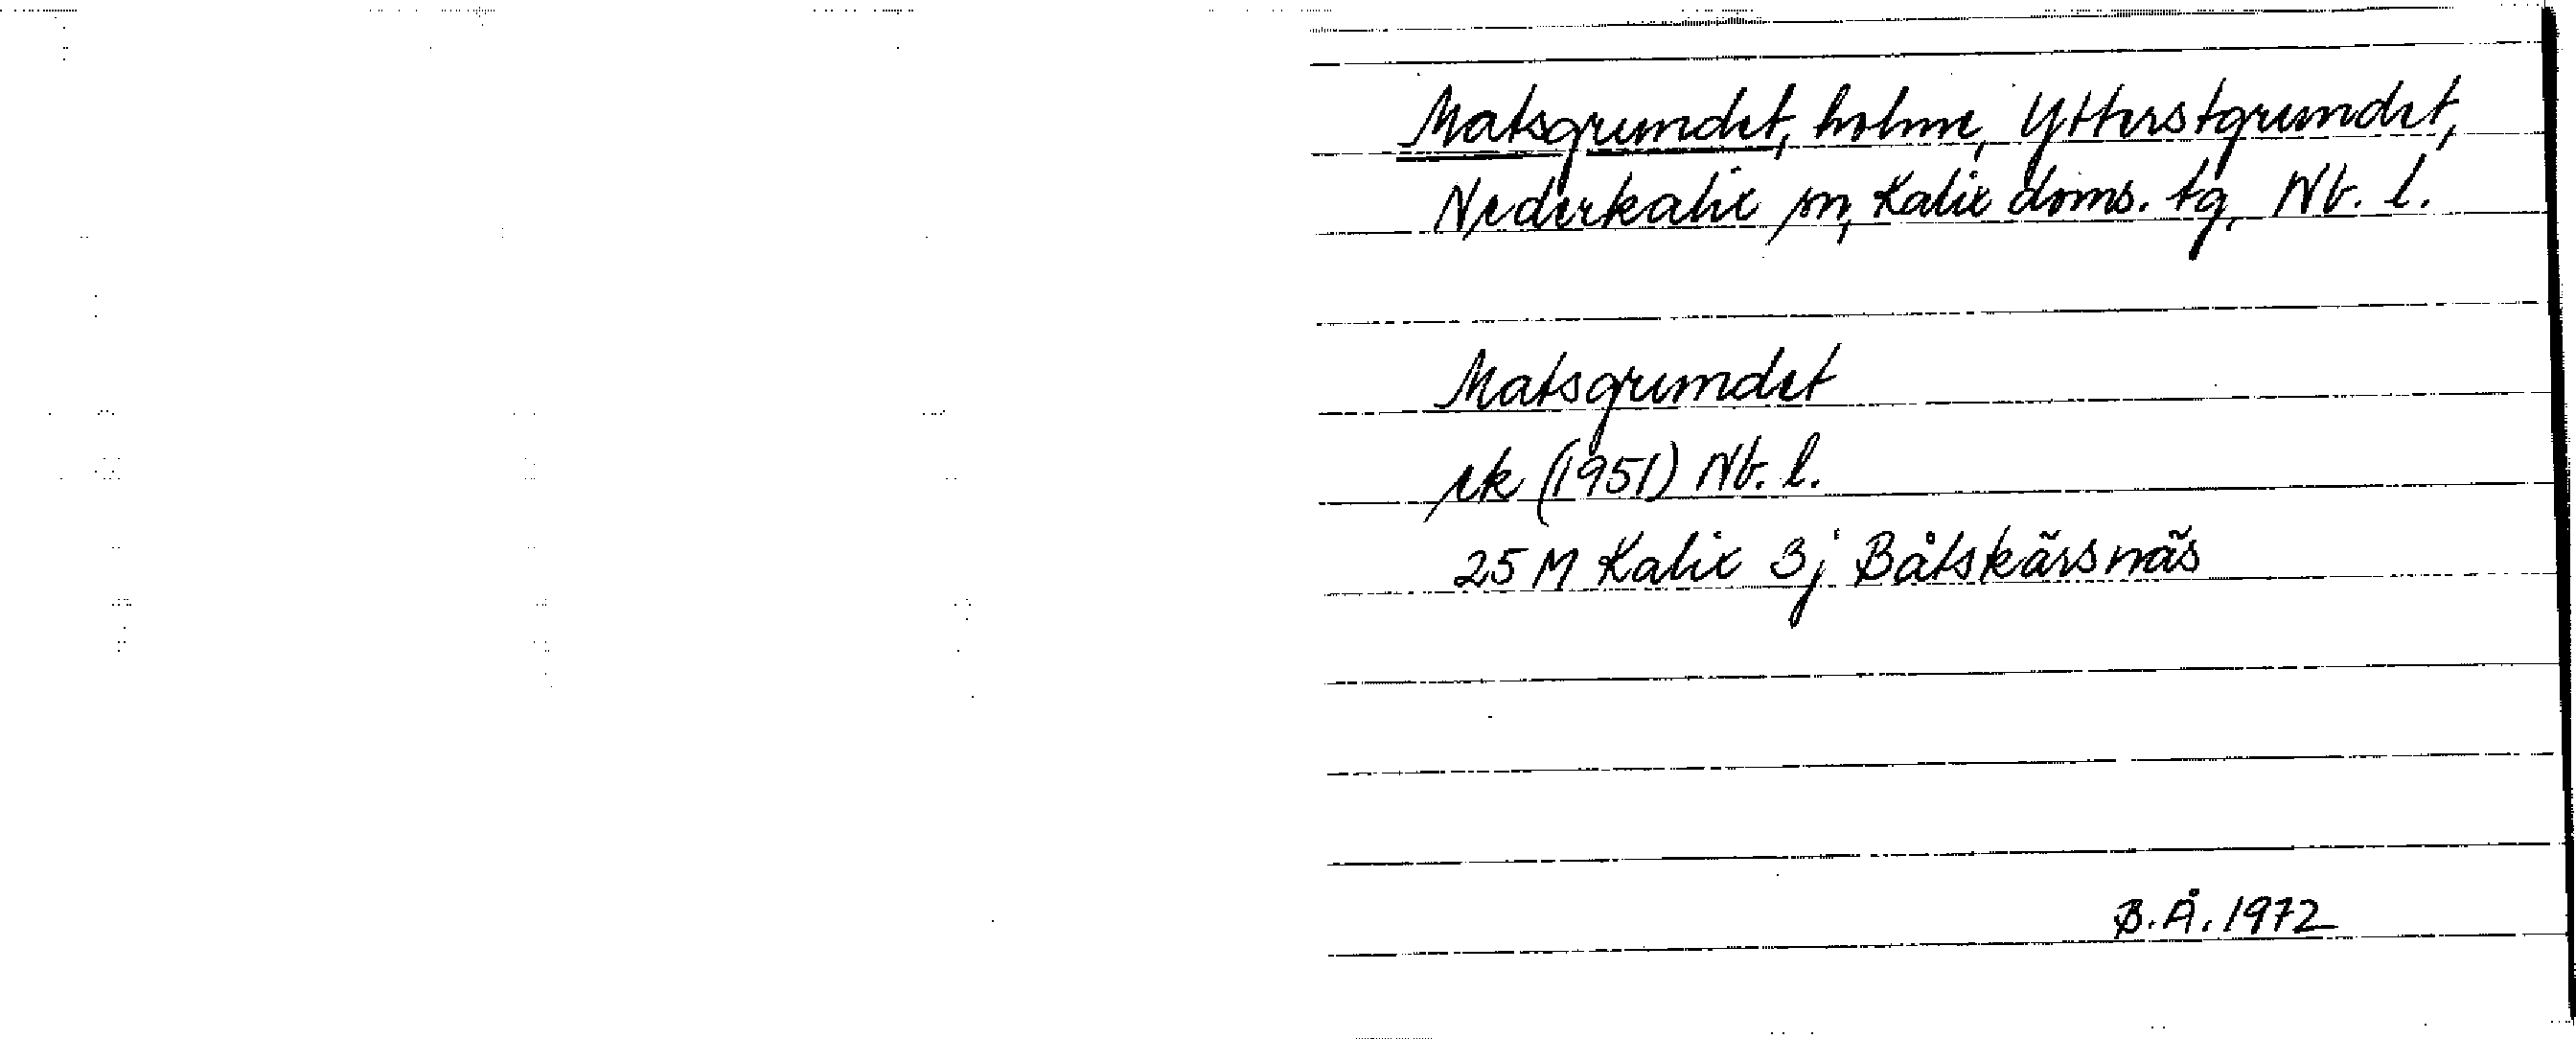 Matsgrundet, holme, Ytterstgrundet,
Nederkalix sn, Kalix doms. tg, Nb. l.
Matsgrundet
rk (1951) Nb. l.
25 M Kalix 3j Båtskärsnäs
B.Å. 1972